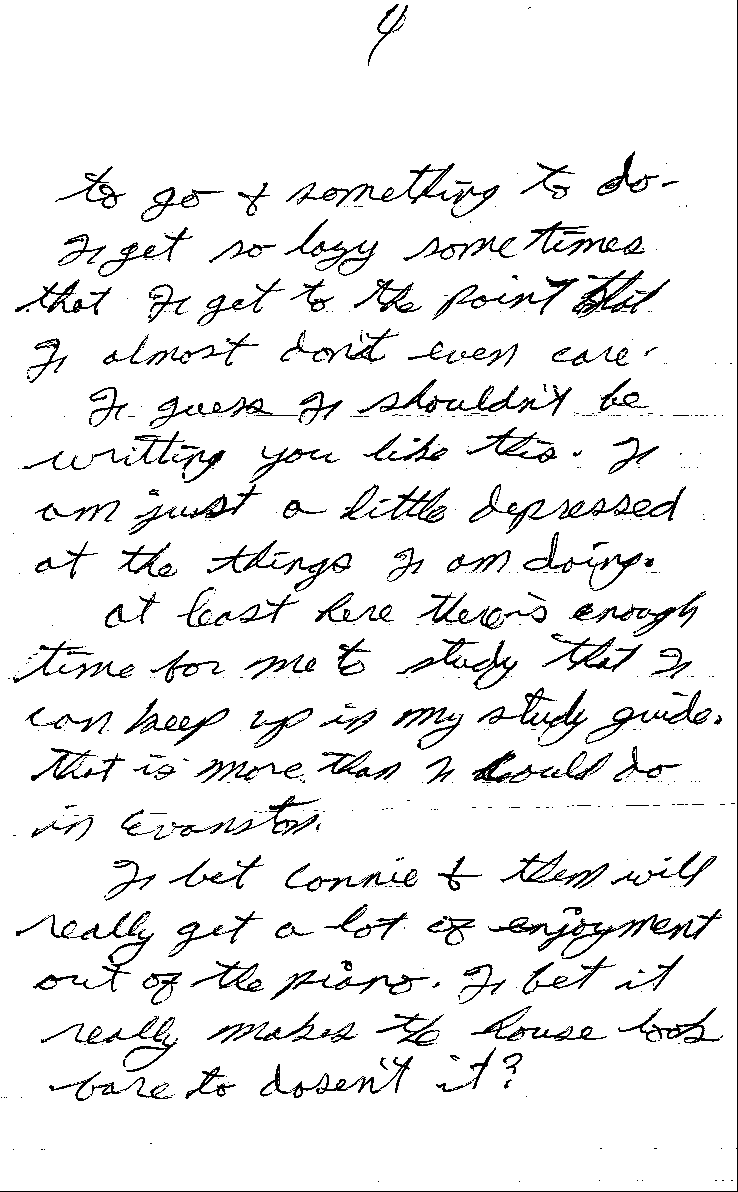 4
to go & something to do -
I get so lazy sometimes
that I get to the point that
I almost don't even care.
I guess I shouldn't be
writting you like this. I
am just a little depressed
at the things I am doing.
at least here there is enough
time for me to study that I
can keep up in my study guide.
that is more than I could do
in Evanston.
I bet Connie & them will
really get a lot of enjoyment
out of the piano. I bet it
really makes the house look
bare to dosen't it?